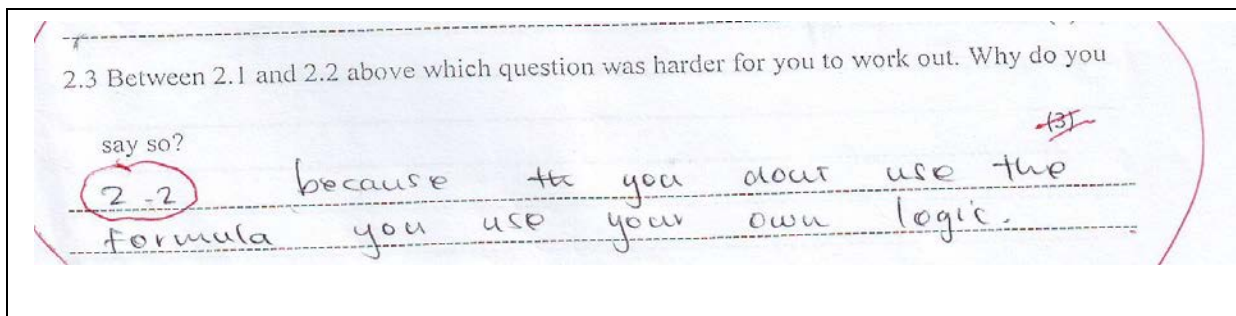 2.3 Between 2.1 and 2.2 above which question was harder for you to work out. Why do you
say so?
(3)
2.2 because you dont use the
formula you use your own logic.